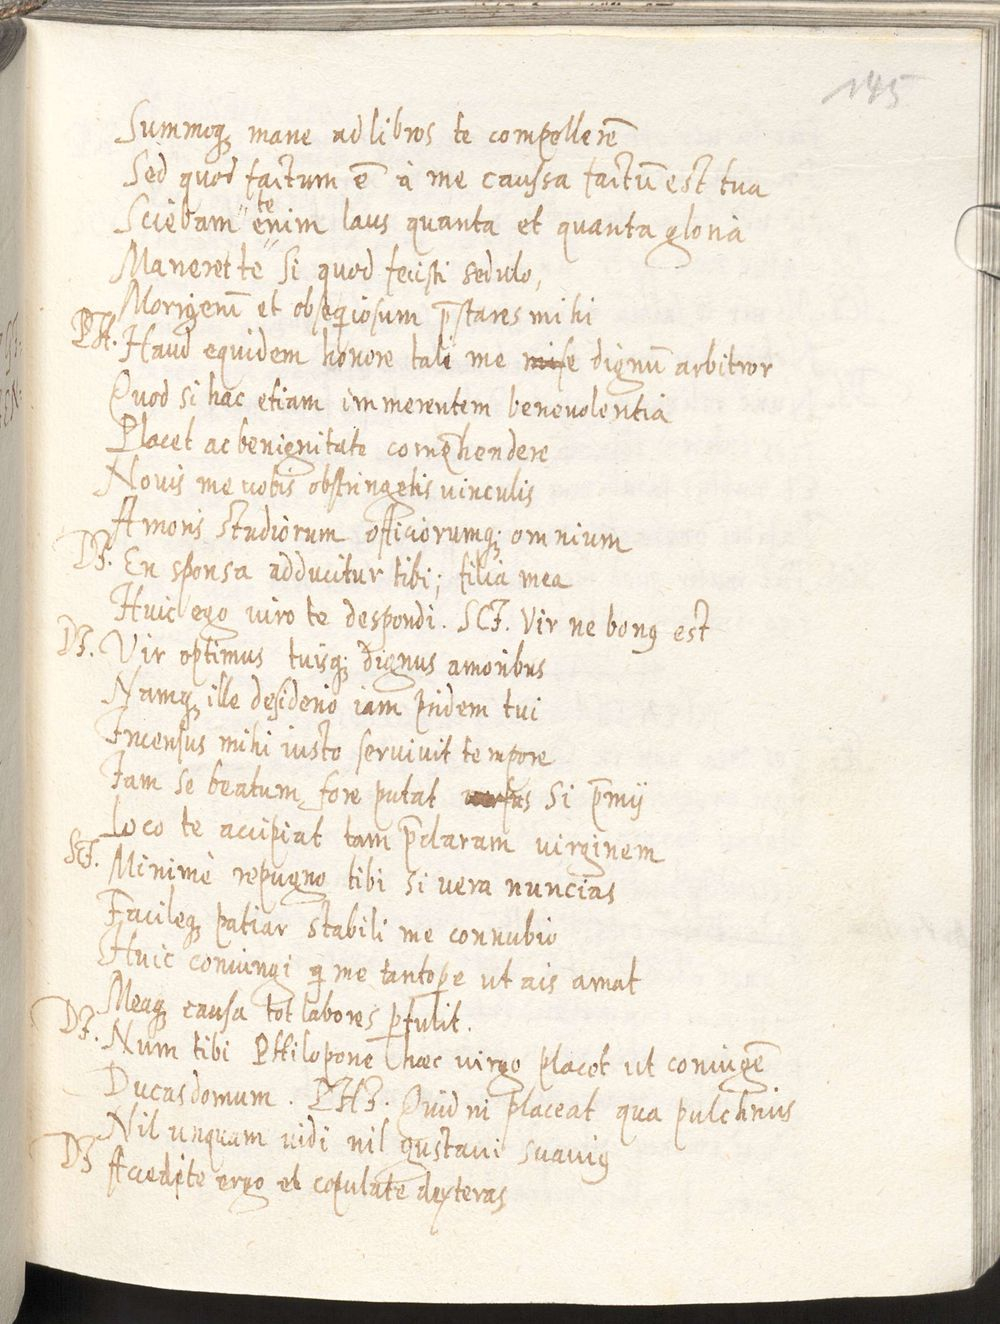 145
Summoq; mane ad libros te compellerē
Sed quod factum ē à me caussa factū est tua
Sciebam te enim laus quanta et quanta gloria
Maneret te si quod fecisti sedulo,
Morigerū et obseq̨iosum p̄stares mihi
PH. Haud equidem honore tali me mise dignū arbitror
Quod si hac etiam immerentem benevolentia
Placet ac benignitate comp̄hendere
Novis me vobis obstringetis vinculis
Amoris studiorum officiorumq; omnium
DI. En sponsa adducitur tibi; filia mea
Huic ego viro te despondi. SCI. Vir ne bonꝰ est
DI. Vir optimus tuisq; dignus amoribus
Namq; ille desiderio iam p̄idem tui
Incensus mihi iusto servivit tempore
Iam se beatum fore putat si p̄mij
Loco te accipiat tam p̄claram virginem
SCI. Minimè repugno tibi si vera nuncias
Facileq; patiar stabili me connubio
Huic coniungi q̄ me tantoꝑe ut ais amat
Meaq; causa tot labores ꝑtulit.
DI. Num tibi Philopone haec virgo placet ut coniugē
Ducas domum. PHI. Quid ni placeat qua pulchrius
Nil unquam vidi nil gustavi suaviꝰ
DI Accedite ergo et copulate dexteras